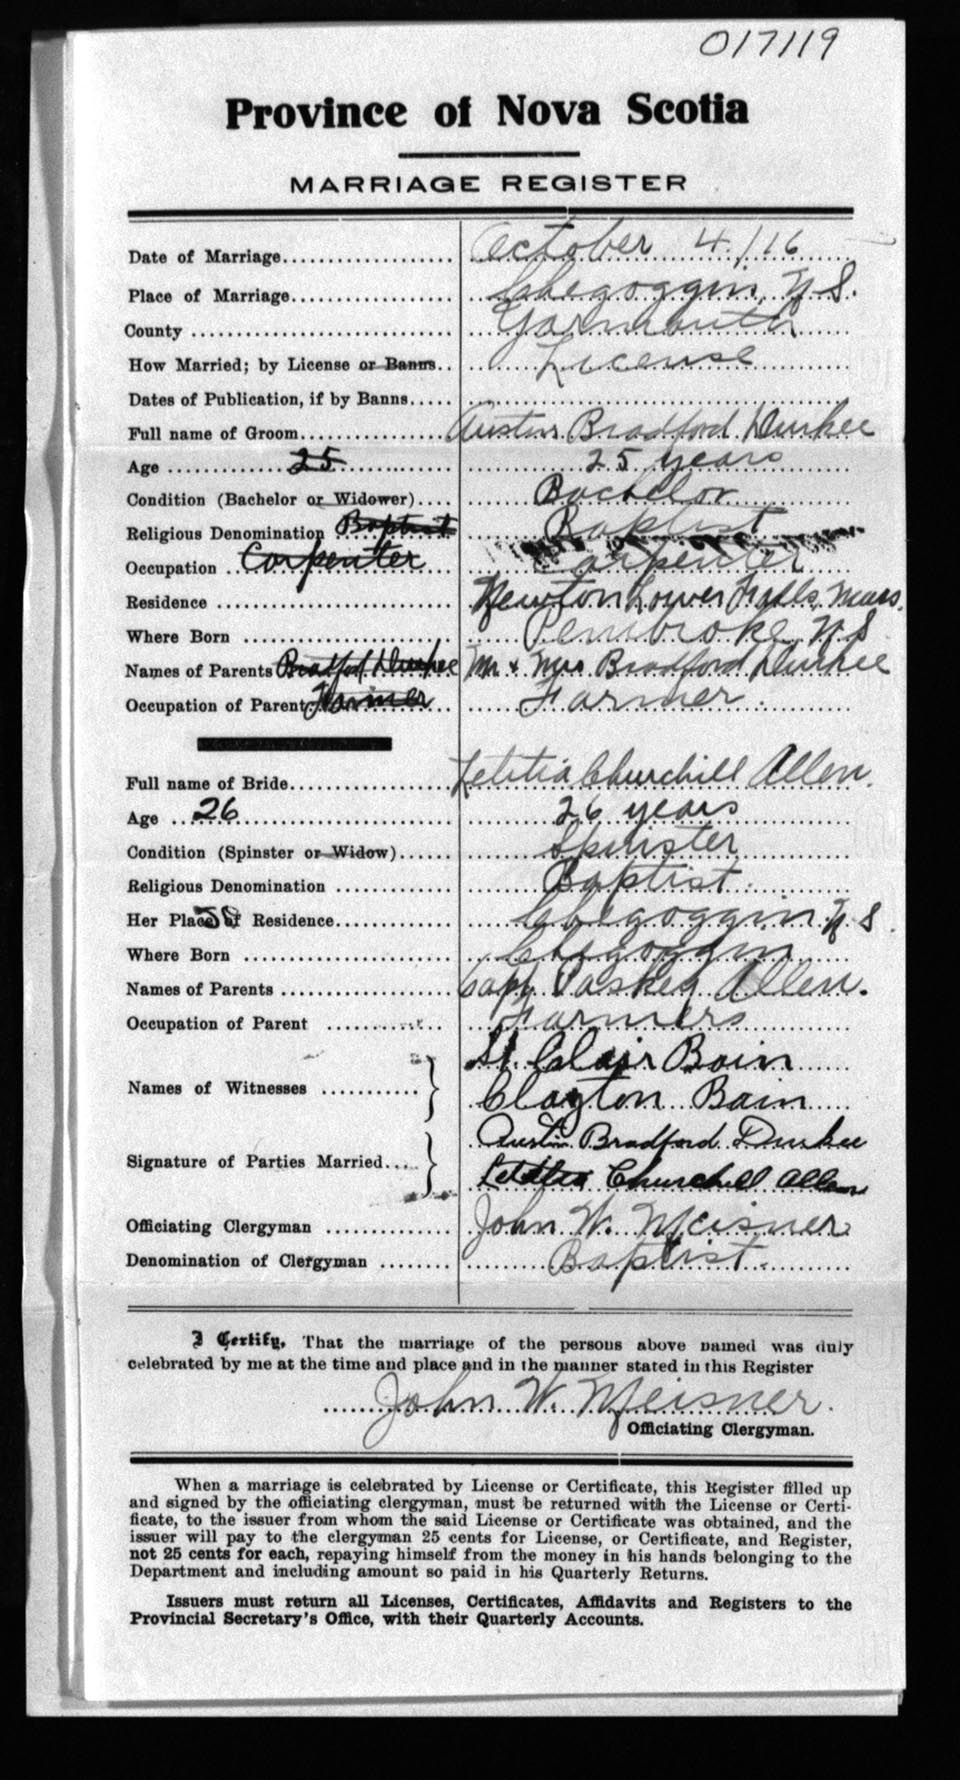 017119
Province of Nova Scotia
MARRIAGE REGISTER
Date of Marriage................... October 4/16
Place of Marriage.................. Chegoggin, N S.
County ............................ Yarmouth
How Married; by License or Banns.. License
Dates of Publication, if by Banns.....
Full name of Groom................ Austin Bradford Durkee
Age 25 25 years
Condition (Bachelor or Widower).... Bachelor
Religious Denomination Baptist Baptist
Occupation Carpenter Carpenter
Residence ......................... Newton Lower Falls, Mass.
Where Born ........................ Pembroke, N S
Names of Parents Bradford Durkee Mr & Mrs Bradford Durkee
Occupation of Parent Farmer Farmer.
Full name of Bride................. Letitia Churchill Allen.
Age 26 26 years
Condition (Spinster or Widow)...... Spinster
Religious Denomination ............ Baptist.
Her Place of Residence............. Chegoggin, N S.
Where Born ........................ Chegoggin
Names of Parents .................. Allen.
Occupation of Parent .............. Farmers
Names of Witnesses ............ St. Clair Bain
Clayton Bain
Signature of Parties Married.... Austin Bradford Durkee
Letitia Churchill Allen
Officiating Clergyman ............. John W. Meisner
Denomination of Clergyman ........ Baptist.
I Certify, That the marriage of the persons above named was duly
celebrated by me at the time and place and in the manner stated in this Register
John W. Meisner.
Officiating Clergyman.
When a marriage is celebrated by License or Certificate, this Register filled up
and signed by the officiating clergyman, must be returned with the License or Certi-
ficate, to the issuer from whom the said License or Certificate was obtained, and the
issuer will pay to the clergyman 25 cents for License, or Certificate, and Register,
not 25 cents for each, repaying himself from the money in his hands belonging to the
Department and including amount so paid in his Quarterly Returns.
Issuers must return all Licenses, Certificates, Affidavits and Registers to the
Provincial Secretary's Office, with their Quarterly Accounts.